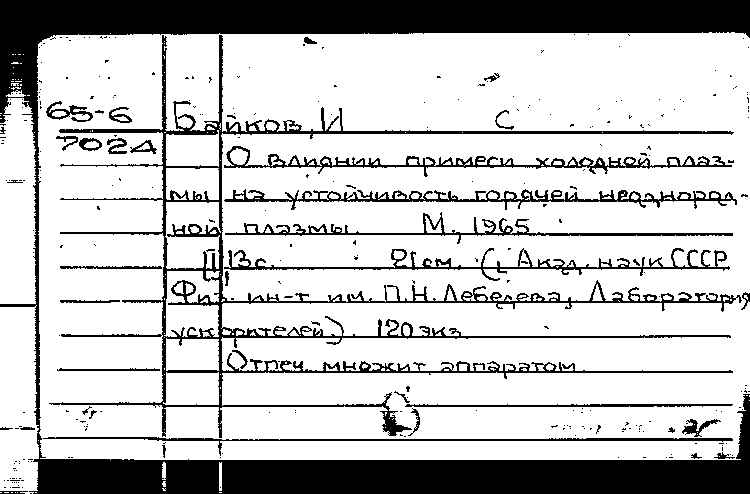 65-6
7024
Байков, И С
О влиянии примеси холодной плаз-
мы на устойчивость горячей неоднород-
ной плазмы. М., 1965
[1], 13 с. 21 см. (Акад. наук СССР
Физ. ин-т им. П.Н. Лебедева, Лаборатория
ускорителей). 120 экз.
Отпеч. множит. аппаратом